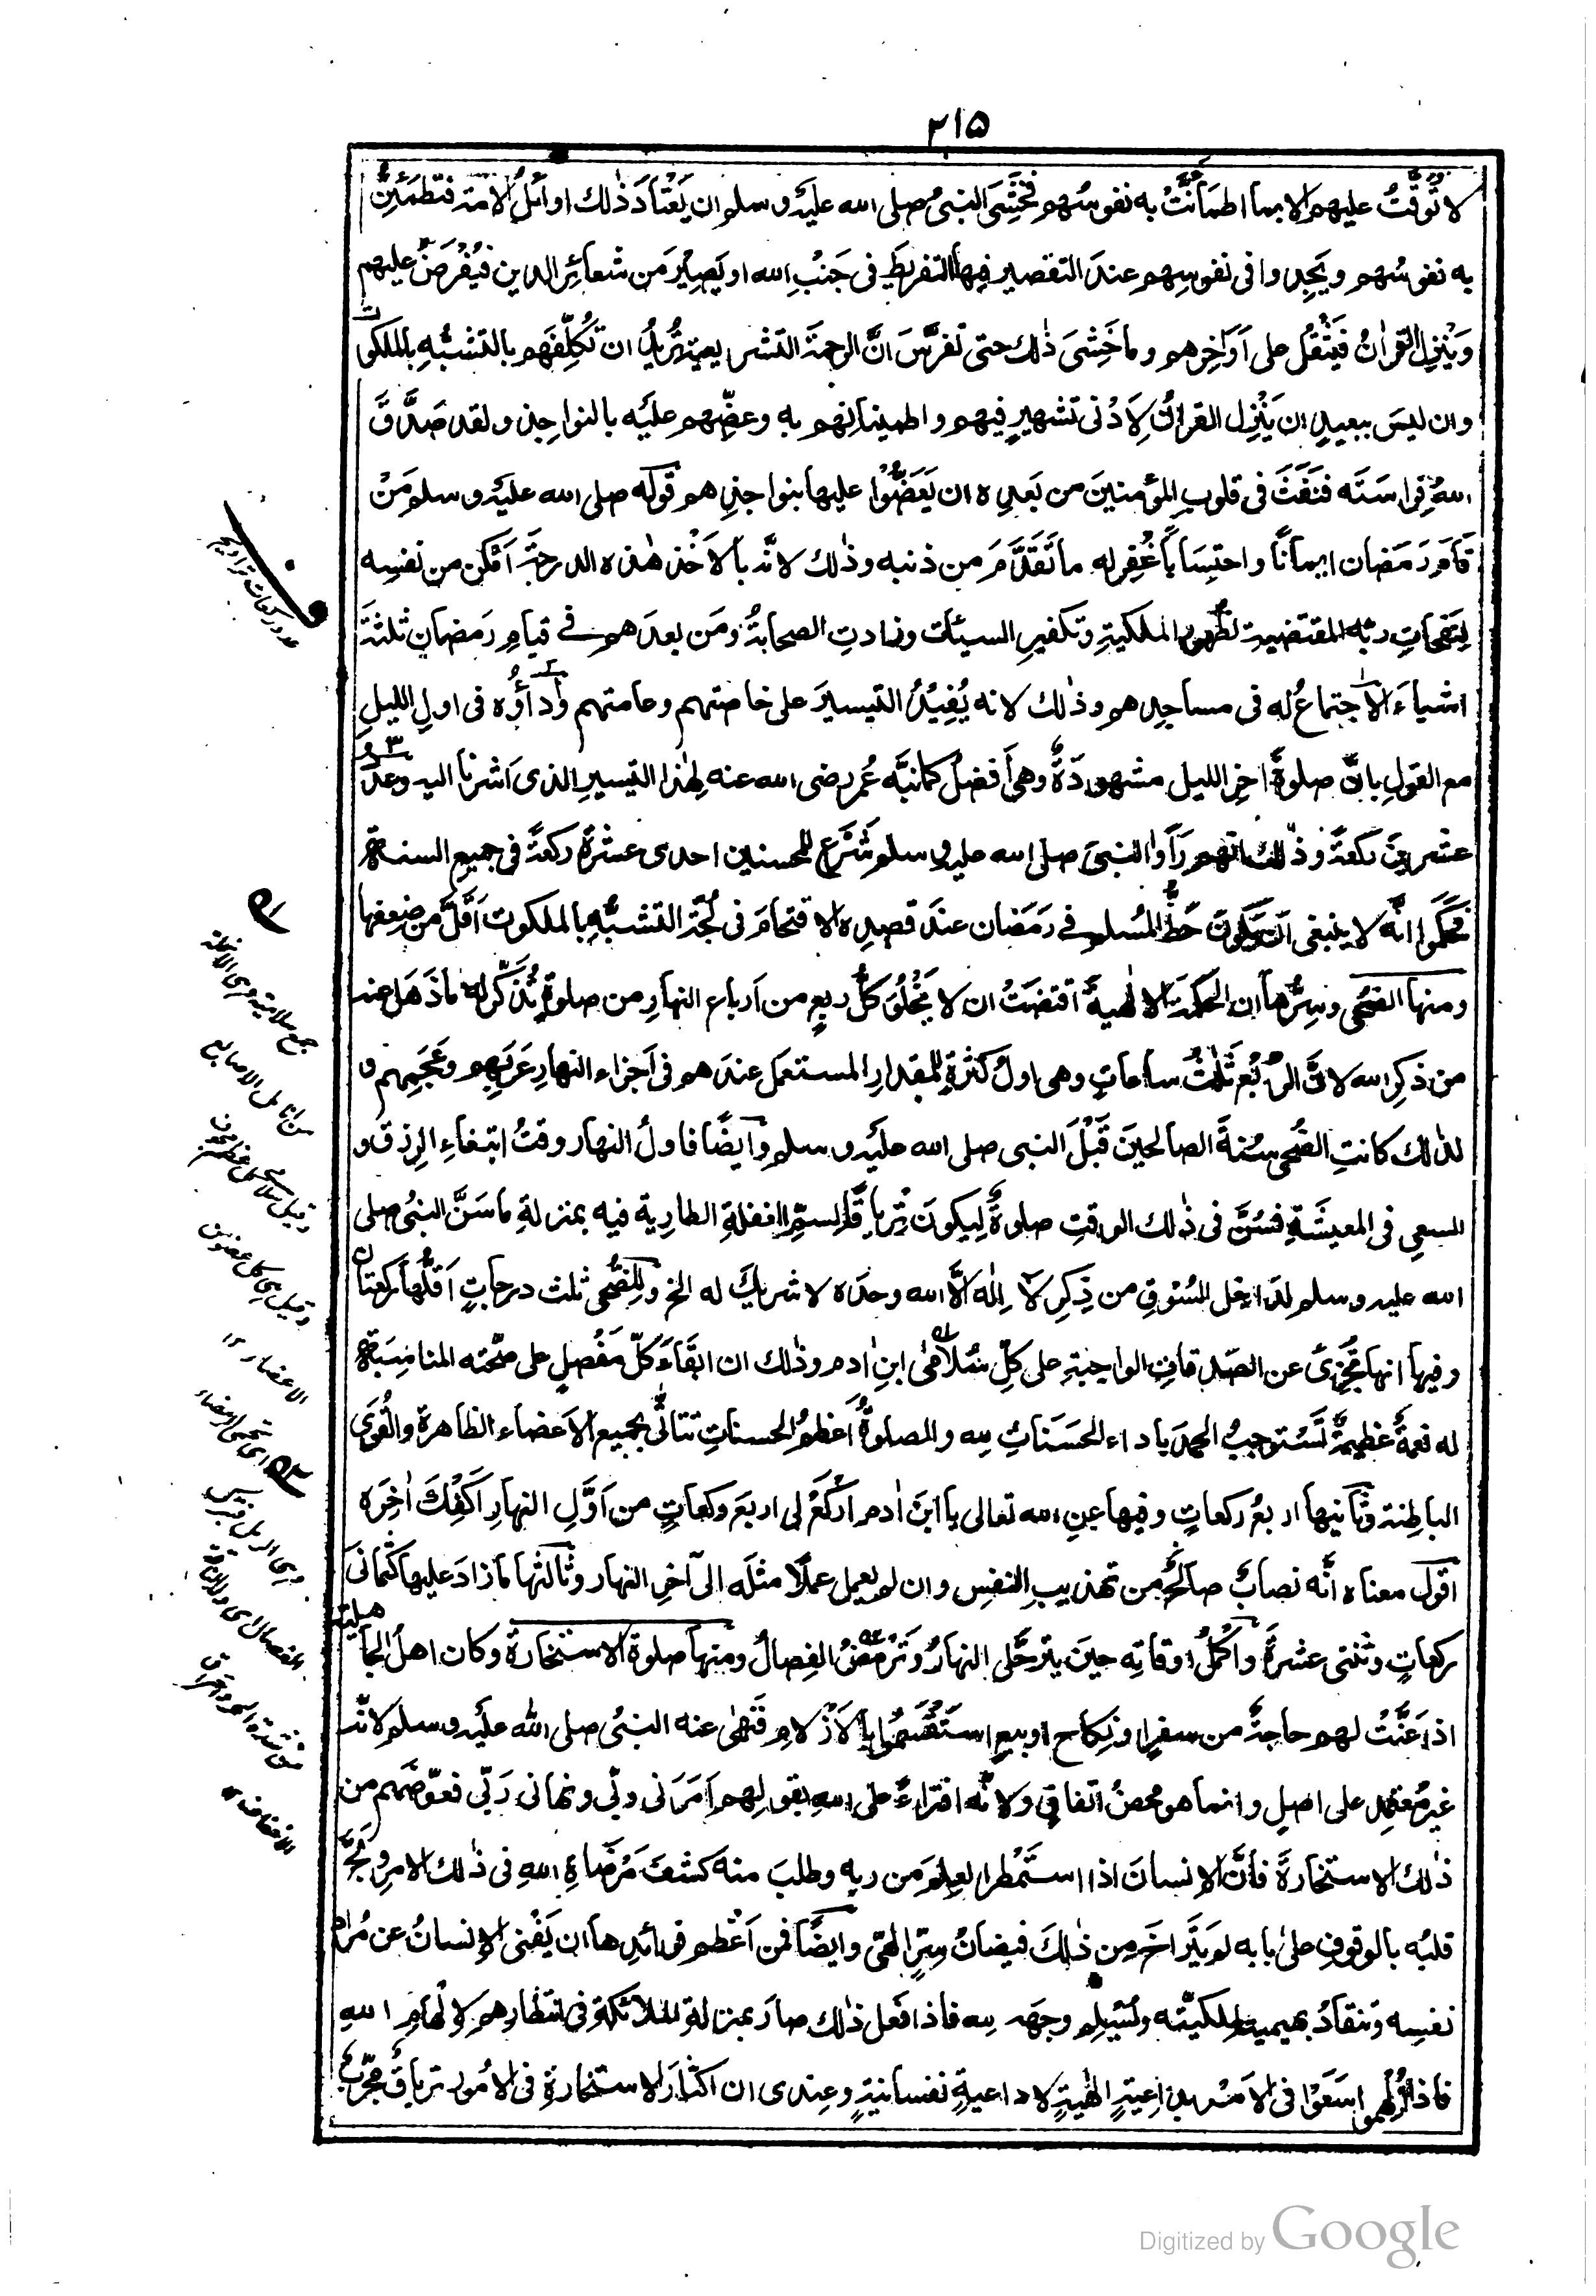 ٢١٥
لا تُوَقَّتُ عليهم الا بما اطمأنَّتْ به نفوسُهم فخَشِيَ النبيُ صلى الله عليه وسلم ان يَعْتادَ ذٰلك اوائلُ الامة فتطمَئِنَّ
به نفوسُهم ويَجِدوا فى نفوسِهم عندَ التقصير فيها التفريطَ فى جَنْبِ الله او يَصِيْرَ من شعائِر الدين فيُفْرَضُ عليهم
ويَنْزِل القرآنُ فيَثْقُل على اَوَاخِرهم وما خَشِىَ ذٰلك حتى تفرَّسَ انَّ الرحمةَ التشريعيةَ تُريدُ ان تُكلِّفَهم بالتشبُّهِ بالملكوت
وان ليسَ ببعيدٍ ان يَنْزِل القرانُ لِاَدْنى تشهيرٍ فيهم واطمينانِهم به وعضِّهم عليه بالنواجذ ولقد صَدَّقَ
اللهُ فِراسَتَه فنَفَثَ فى قلوبِ المؤمنينَ من بَعدِه ان يَعَضُّوْا عليها بنواجذِهم قوله صلى الله عليه وسلم مَنْ
قَامَ رَمَضان ايمانًا واحتِسَابًا غُفِر له ما تَقَدَّمَ من ذنبه وذٰلك لانه بالاَخْذِ هٰذه الدرجةَ اَمْكن من نفسِه
لِنَفَحاتِ ربِّه المقتضيةِ لظهورِ الملكيةِ وتكفيرِ السيئات وزادتِ الصحابةُ ومَن بعدَهم فى قيامِ رَمضان ثلثةَ
اشياءَ الاجتماعُ له فى مساجدِهم وذٰلك لانه يُفِيْدُ التيسيرَ على خاصتهم وعامتهم واَداؤُه فى اولِ الليلِ
مع القولِ بانَّ صلوةَ اخِرِ الليل مشهودَةٌ وهى اَفضلُ كما نبَّه عُمر رضى الله عنه لِهٰذا التيسيرِ الذى اَشرنا اليه وعدَدُه
عشرينَ ركعةً وذٰلك انهم رَأَوا النبىَ صلى الله عليه وسلم شَرَع للمحسنين احدى عشرةَ ركعةً فى جميعِ السنة
فحكَموا انَّه لا ينبغى اَن يكونَ حَظُّ المُسلم فى رَمَضان عندَ قصدِه الاقتحامَ فى لُجَّةِ التشبُّهِ بالملكوت اَقَلَّ من ضِعفِها
ومنها الضُحٰى وسِرُّها ان الحكمةَ الالٰهيةَ اقتضَتْ ان لا يَخْلُوَ كلُّ ربعٍ من اَرباع النهارِ من صلوةٍ تُذَكِّر له ما ذَهَل عنه
من ذكرِ الله لانَّ الرُبُعَ ثَلٰثُ ساعاتٍ وهى اولُ كَثرةٍ للمقدارِ المستعمَل عندَهم فى اَجزاءِ النهارِ عَرَبِهم وعَجَمِهم و
لذٰلك كانتِ الضُحٰى سُنةَ الصالحينَ قَبْلَ النبى صلى الله عليه وسلم واَيضًا فاولُ النهار وقتُ ابتغاءِ الرزق و
السعىِ فى المعيشَةِ فسُنَّ فى ذٰلك الوقتِ صلوةٌ ليكونَ تِرْياقًا لِسمِّ الغفلةِ الطارِية فيه بمنزلةِ ما سَنَّ النبىُ صلى
الله عليه وسلم لِدَاخلِ السُوْقِ من ذِكرِ لا اِلٰه الَّا الله وحدَه لا شريك له الخ وللضُحٰى ثلث درجاتٍ اَقلُّها ركعتان
وفيها انها تُجْزِئُ عن الصَدَقاتِ الواجبةِ على كلِّ سُلامٰى ابنِ اٰدم وذٰلك ان ابقَاءَ كُلِّ مَفْصِلٍ على صحّته المناسِبَةِ
له نعمةٌ عَظِيمةٌ تَسْتوجِبُ الحمدَ باداءِ الحَسَناتِ لله والصلوةُ اَعْظمُ الحسناتِ تتأتّى بجميعِ الاَعضاء الظاهرةِ والقُوَى
الباطِنة وثانيها اربعُ ركعاتٍ وفيها عنِ الله تعالى يا ابنَ اٰدم اركَعْ لى اربعَ ركعاتٍ من اَوَّلِ النهارِ اَكْفِكَ اٰخِرَه
اقول معناه انَّه نصابٌ صالحٌ من تهذيبِ النفسِ وان لم يَعمل عملًا مثلَه الى آخرِ النهار وثالثُها ما زادَ عليها كثمانىَ
ركعاتٍ وثنتى عشرةَ واَكملُ اوقاتِه حينَ يترحَّلى النهارُ وتَرْمَضُ الفِصالُ ومنها صلوةُ الاستخارةِ وكان اهلُ الجاهلية
اذا عَنَّتْ لهم حاجةٌ من سفرٍ او نِكاح او بيعٍ استَقْسَمُوا بالاَزْلامِ فَنَهٰى عنه النبىُ صلى الله عليه وسلم لانه
غيرُ مُعتمِدٍ على اصلٍ وانما هو محضُ اتفاقٍ ولانَّه افتراءٌ على الله بقولِهم اَمَرَنى ربّى ونهانى رَبّى فعوّضَهم من
ذٰلك الاستخارةَ فانَّ الانسانَ اذا استَمْطر العِلمَ من ربِه وطلبَ منه كشفَ مَرْضَاةِ اللهِ فى ذٰلك الامرِ ولَجَّ
قلبُه بالوقوفِ على بابه لم يَتَراخَ مِن ذٰلك فيضانُ سِرٍّ الٰهىّ وايضًا فمن اَعْظمِ فوائدِها ان يَفْنٰى الانسانُ عن مُرادِ
نفسِه وتنقادُ بهيميتُه لملكيّتِه ويُسْلِم وجهَه لله فاذا فَعل ذٰلك صارَ بمنزلةِ الملائكةِ فى انتظارِهم لِاِلْهامِ اللهِ
فاذا اُلْهِموا سَعَوْا فى الاَمْرِ بداعيةٍ الٰهيةٍ لا داعيةٍ نفسانيةٍ وعِندى ان اكثارَ الاستخارةِ فى الاُمور ترياقٌ مجرَّبٌ
عدد ركعات تراويح
جمع سلامية وهى الانملة
من انامل الاصابع
الاعضاء ١٢
Digitized by Google